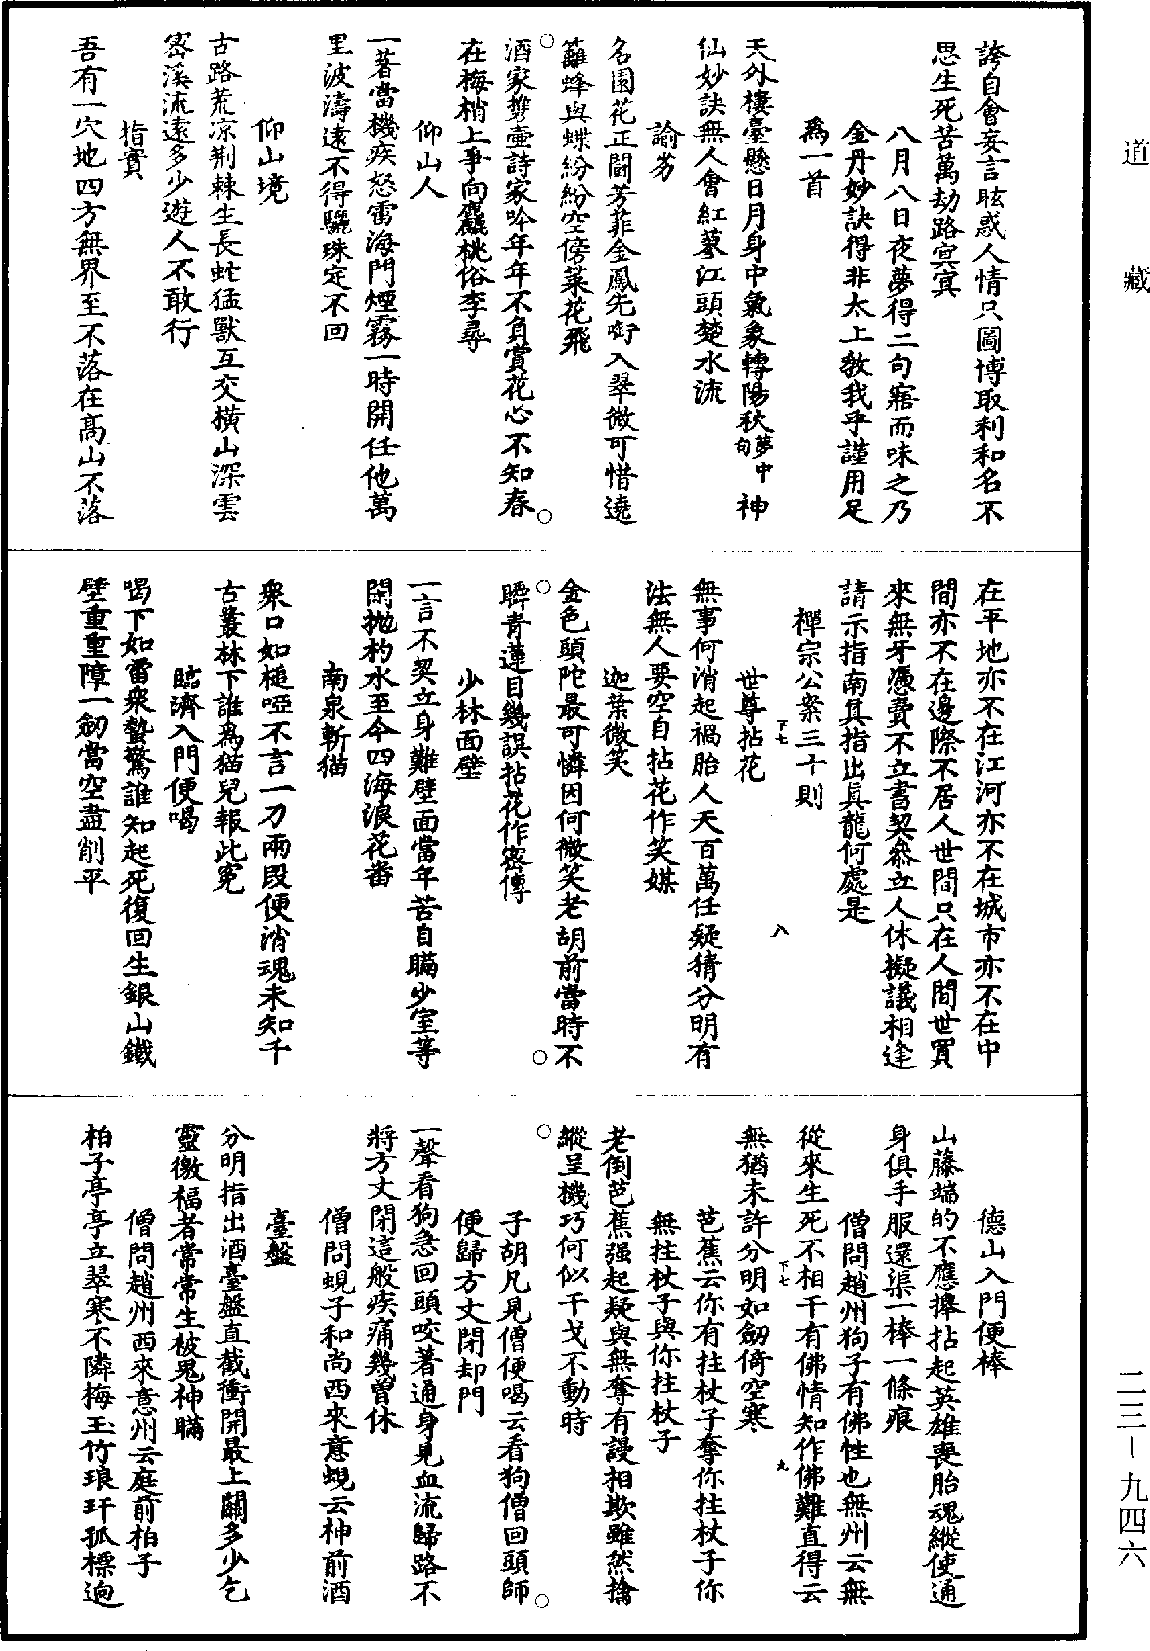 道藏
誇自會妄言眩惑人情只圖博取利和名不
思生死苦萬劫路冥冥
八月八日夜夢得二句寤而味之乃
金丹妙訣得非太上教我乎謹用足
爲一首
天外樓臺懸日月身中氣象轉陽秋夢中句神
仙妙訣無人會紅蓼江頭楚水流
諭劣
名園花正鬪芳菲金鳳先啣入翠微可惜遶
籬蜂與蝶紛紛空傍菜花飛
酒家攜壷詩家吟年年不負賞花心不知春
在梅梢上爭向麤桃俗李尋
仰山人
一著當機疾怒雷海門煙霧一時開任他萬
里波濤遠不得驪珠定不回
仰山境
古路荒凉荆棘生長虵猛獸互交橫山深雲
宻溪流遠多少遊人不敢行
指實
吾有一穴地四方無界至不落在髙山不落
在平地亦不在江河亦不在城市亦不在中
間亦不在邊際不居人世間只在人間世買
來無牙憑費不立書契叅立人休擬議相逢
請示指南其指出眞龍何處是
禪宗公案三十則
世尊拈花
下七
八
無事何消起禍胎人天百萬任疑猜分明有
法無人要空自拈花作笑媒
迦葉微笑
金色頭陀最可憐因何微笑老胡前當時不
瞬青蓮目幾誤拈花作宻傳
少林面壁
一言不契立身難壁面當年苦自瞞少室等
閑抛杓水至今四海浪花畨
南泉斬猫
衆口如槌啞不言一刀兩段便消魂未知千
古叢林下誰為猫兒報此寃
臨濟入門便喝
喝下如雷衆蟄驚誰知起死復回生銀山鐵
壁重重障一劒當空盡削平
德山入門便棒
山藤端的不應擡拈起英雄喪胆魂縱使通
身俱手服還渠一棒一條痕
僧問趙州狗子有佛性也無州云無
從來生死不相干有佛情知作佛難直得云
下七
九
無猶未許分明如劒倚空寒
芭蕉云你有拄杖子奪你拄杖子你
無拄杖子與你拄杖子
老倒芭蕉强起疑與無奪有謾相欺雖然擒
縱呈機巧何似干戈不動時
子胡凡見僧便喝云看狗僧回頭師
便歸方丈閉却門
一聲看狗急回頭咬著通身見血流歸路不
將方丈閉這般疾痛幾曽休
僧問蜆子和尚西來意蜆云神前酒
臺盤
分明指出酒臺盤直截衝開最上關多少乞
靈徼福者常常生被鬼神瞞
僧問趙州西來意州云庭前柏子
柏子亭亭立翠寒不隣梅玉竹琅玕孤標逈
二三—九四六